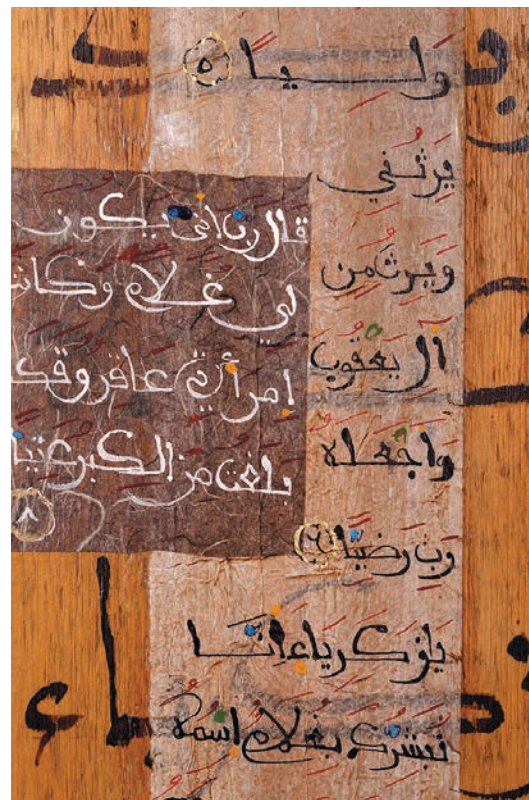 وليا ٥
يَرِثُني
ويرثُ من
آل يعقوب
واجعله
رب رضيّا ٦
يازكرياء انّا
نبشرك بغلام اسمه
قال رب انى يكون
لي غلام وكانت
امرأتي عاقر وقد
بلغت من الكبر عتيا
٨